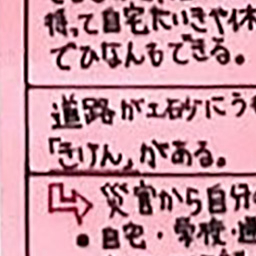 得って自宅たいきや休
でひなんもできる。
道路が土砂にう
「きけん」がある。
災害から自分の
• 自宅・学校・通